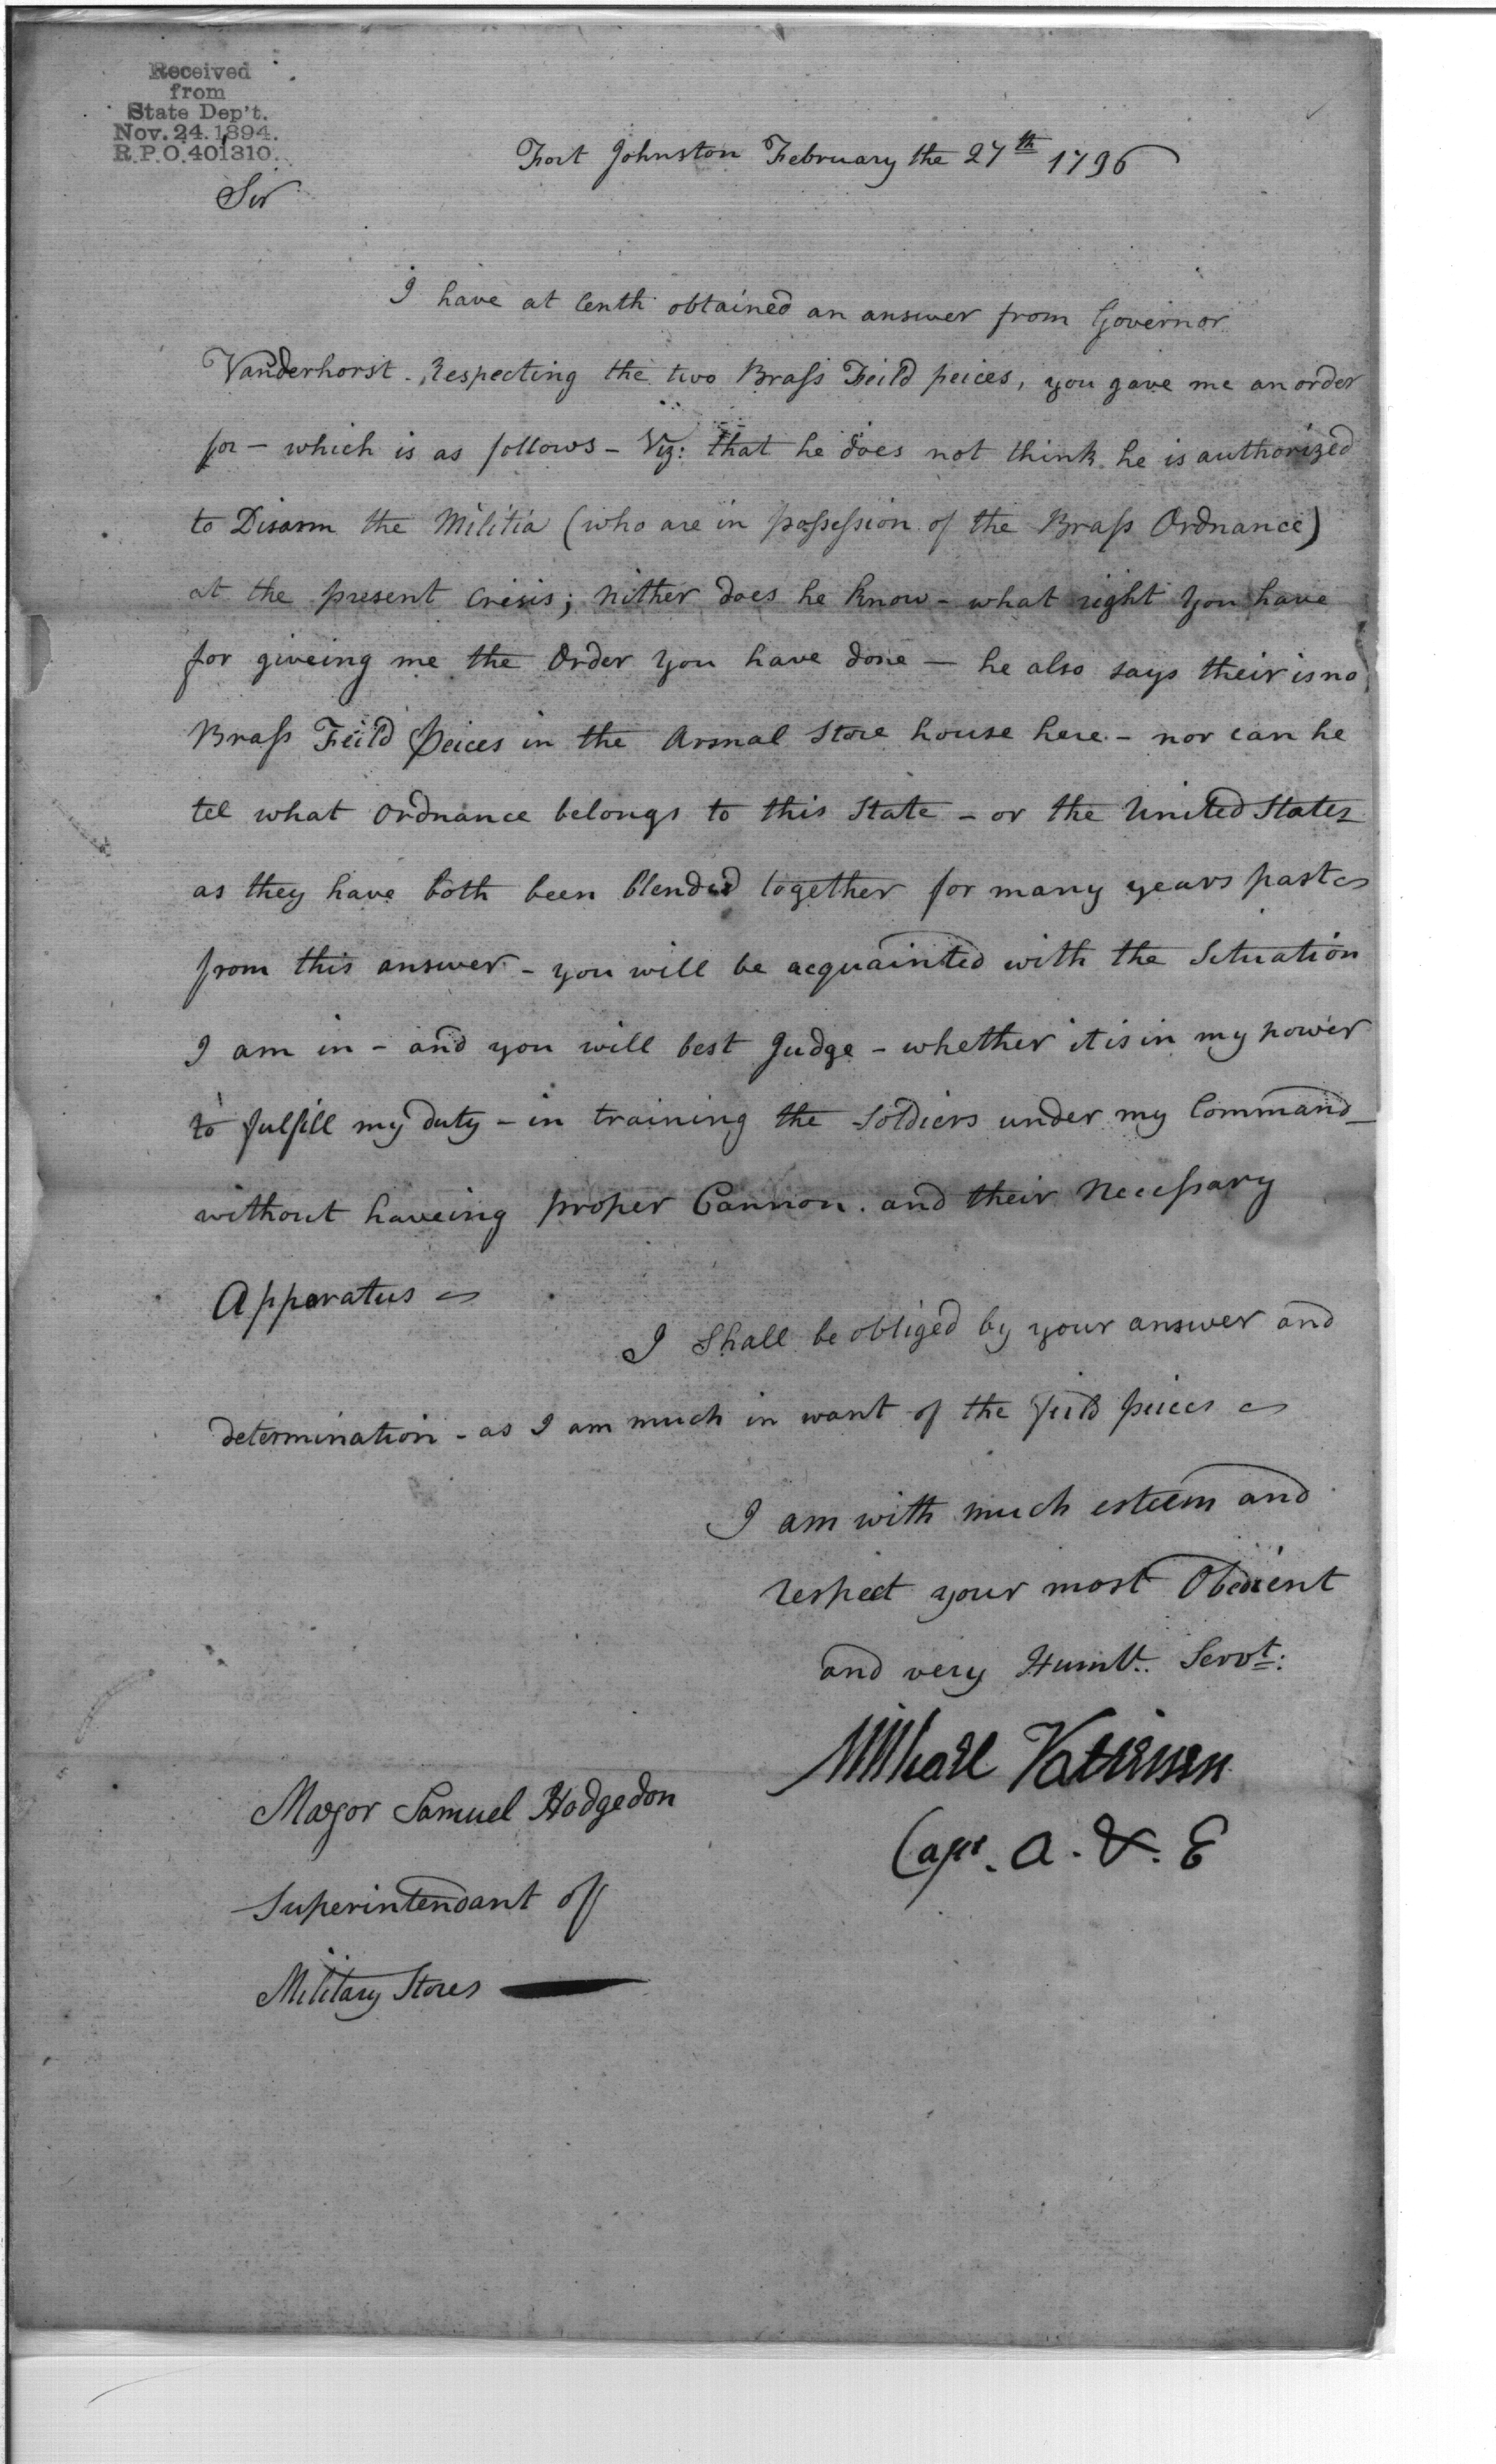 Received
from
State Dep't.
Nov. 24. 1894.
R.P.O. 401310.
Fort Johnston February the 27th 1796
Sir
I have at lenth obtained an answer from Governor
Vanderhorst - Respecting the two Brass Feild peices, you gave me an order
for - which is as follows - Viz: that he does not think he is authorized
to Disarm the Militia (who are in possession of the Brass Ordnance)
at the present Crisis; nither does he Know - what right you have
for giveing me the Order you have done - he also says their is no
Brass Feild Peices in the Arsnal Store house here - nor can he
tel what Ordnance belongs to this State - or the United States
as they have both been blended together for many years past
from this answer - you will be acquainted with the Situation
I am in - and you will best Judge - whether it is in my power
to fulfill my duty - in training the Soldiers under my Command
without haveing proper Cannon. and their Necessary
Apparatus
I Shall be obliged by your answer and
determination - as I am much in want of the feild peices
I am with much esteem and
respect your most Obedient
and very Humbl. Servt:
Michael Kalteisen
Capt. A. & E
Major Samuel Hodgedon
Superintendant of
Military Stores